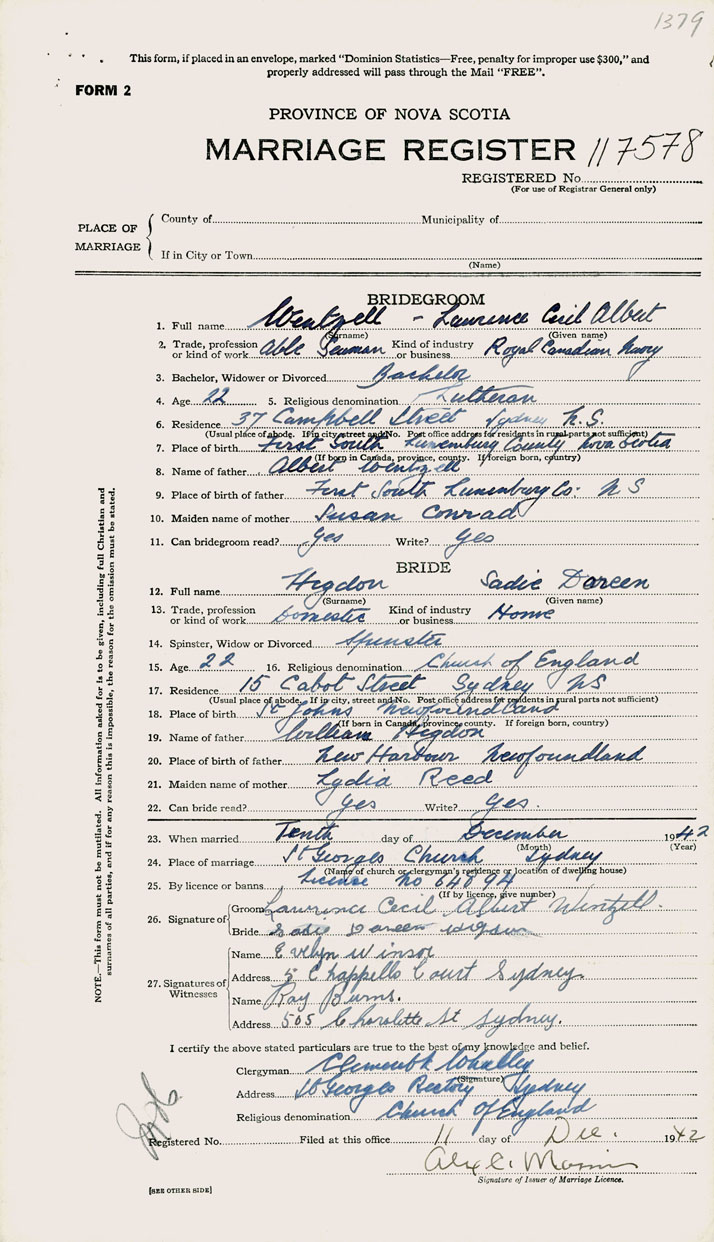 1379
This form, if placed in an envelope, marked "Dominion Statistics—Free, penalty for improper use $300," and
properly addressed will pass through the Mail "FREE".
FORM 2
PROVINCE OF NOVA SCOTIA
MARRIAGE REGISTER 117578
REGISTERED No.
(For use of Registrar General only)
PLACE OF MARRIAGE
County of Municipality of
If in City or Town
(Name)
BRIDEGROOM
1. Full name Wentzell - Laurence Cecil Albert
(Surname) (Given name)
2. Trade, profession or kind of work Able Seaman Kind of industry or business Royal Canadian Navy
3. Bachelor, Widower or Divorced Bachelor
4. Age 22 5. Religious denomination Lutheran
6. Residence 37 Campbell Street Sydney N.S.
(Usual place of abode. If in city, street and No. Post office address for residents in rural parts not sufficient)
7. Place of birth First South Lunenburg County Nova Scotia
(If born in Canada, province, county. If foreign born, country)
8. Name of father Albert Wentzell
9. Place of birth of father First South Lunenburg Co: N S
10. Maiden name of mother Susan Conrad
11. Can bridegroom read? Yes Write? Yes
BRIDE
12. Full name Higdon Sadie Doreen
(Surname) (Given name)
13. Trade, profession or kind of work Domestic Kind of industry or business Home
14. Spinster, Widow or Divorced Spinster
15. Age 22 16. Religious denomination Church of England
17. Residence 15 Cabot Street Sydney NS
(Usual place of abode. If in city, street and No. Post office address for residents in rural parts not sufficient)
18. Place of birth St Johns Newfoundland
(If born in Canada, province, county. If foreign born, country)
19. Name of father William Higdon
20. Place of birth of father New Harbour Newfoundland
21. Maiden name of mother Lydia Reed
22. Can bride read? Yes Write? Yes.
23. When married Tenth day of December 1942
(Month) (Year)
24. Place of marriage St Georges Church Sydney
(Name of church or clergyman's residence or location of dwelling house)
25. By licence or banns License No 64899
(If by licence, give number)
26. Signature of
Groom Lawrence Cecil Albert Wentzell.
Bride Sadie Doreen Higdon
27. Signatures of Witnesses
Name Evelyn Winsor
Address 5 Chappells Court Sydney
Name Ray Burns.
Address 505 Charolette St Sydney.
I certify the above stated particulars are true to the best of my knowledge and belief.
Clergyman Clement Whalley
(Signature)
Address St Georges Rectory Sydney
Religious denomination Church Of England
Registered No. Filed at this office 11 day of Dec. 1942
Signature of Issuer of Marriage Licence.
[SEE OTHER SIDE]
NOTE.—This form must not be mutilated. All information asked for is to be given, including full Christian and
surnames of all parties, and if for any reason this is impossible, the reason for the omission must be stated.